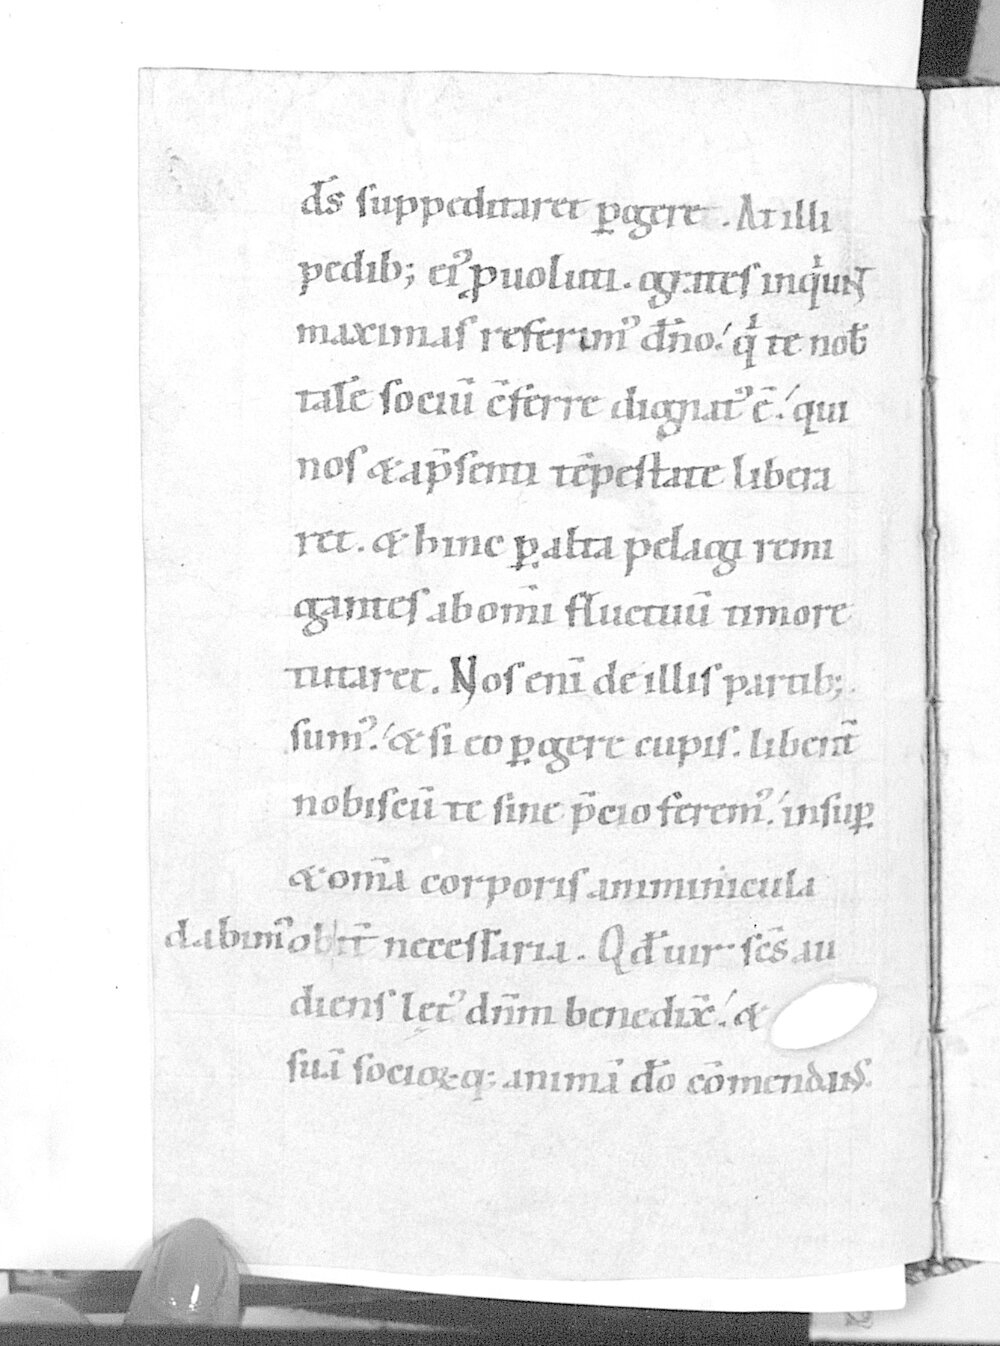 d̄s suppeditaret ꝑgere . At illi
pedib; ei᷒ ꝓuoluti . grates inqͥunt
maximas referim᷒ dn̄o .ʹ qͥ te nob̄
talē sociū c̄ferre dignat᷒ ē .ʹ qui
nos & a p̄senti tēpestate libera
ret . & hinc ꝑ alta pelagi remi
gantes ab om̄i fluctuū timore
tutaret . Nos eni̅ de illis partib; .
sum᷒ .ʹ & si eo ꝑgere cupis . libent̄
nobiscū te sine p̄cio ferem᷒ .ʹ insuꝑ
& om̄a corporis amminicula
dabim᷒ necessaria . Qd̄ uir sc̄s au
diens let᷒ dn̄m benedix̄ .ʹ &
suā socioꝝq; animā d̄o cōmendans .